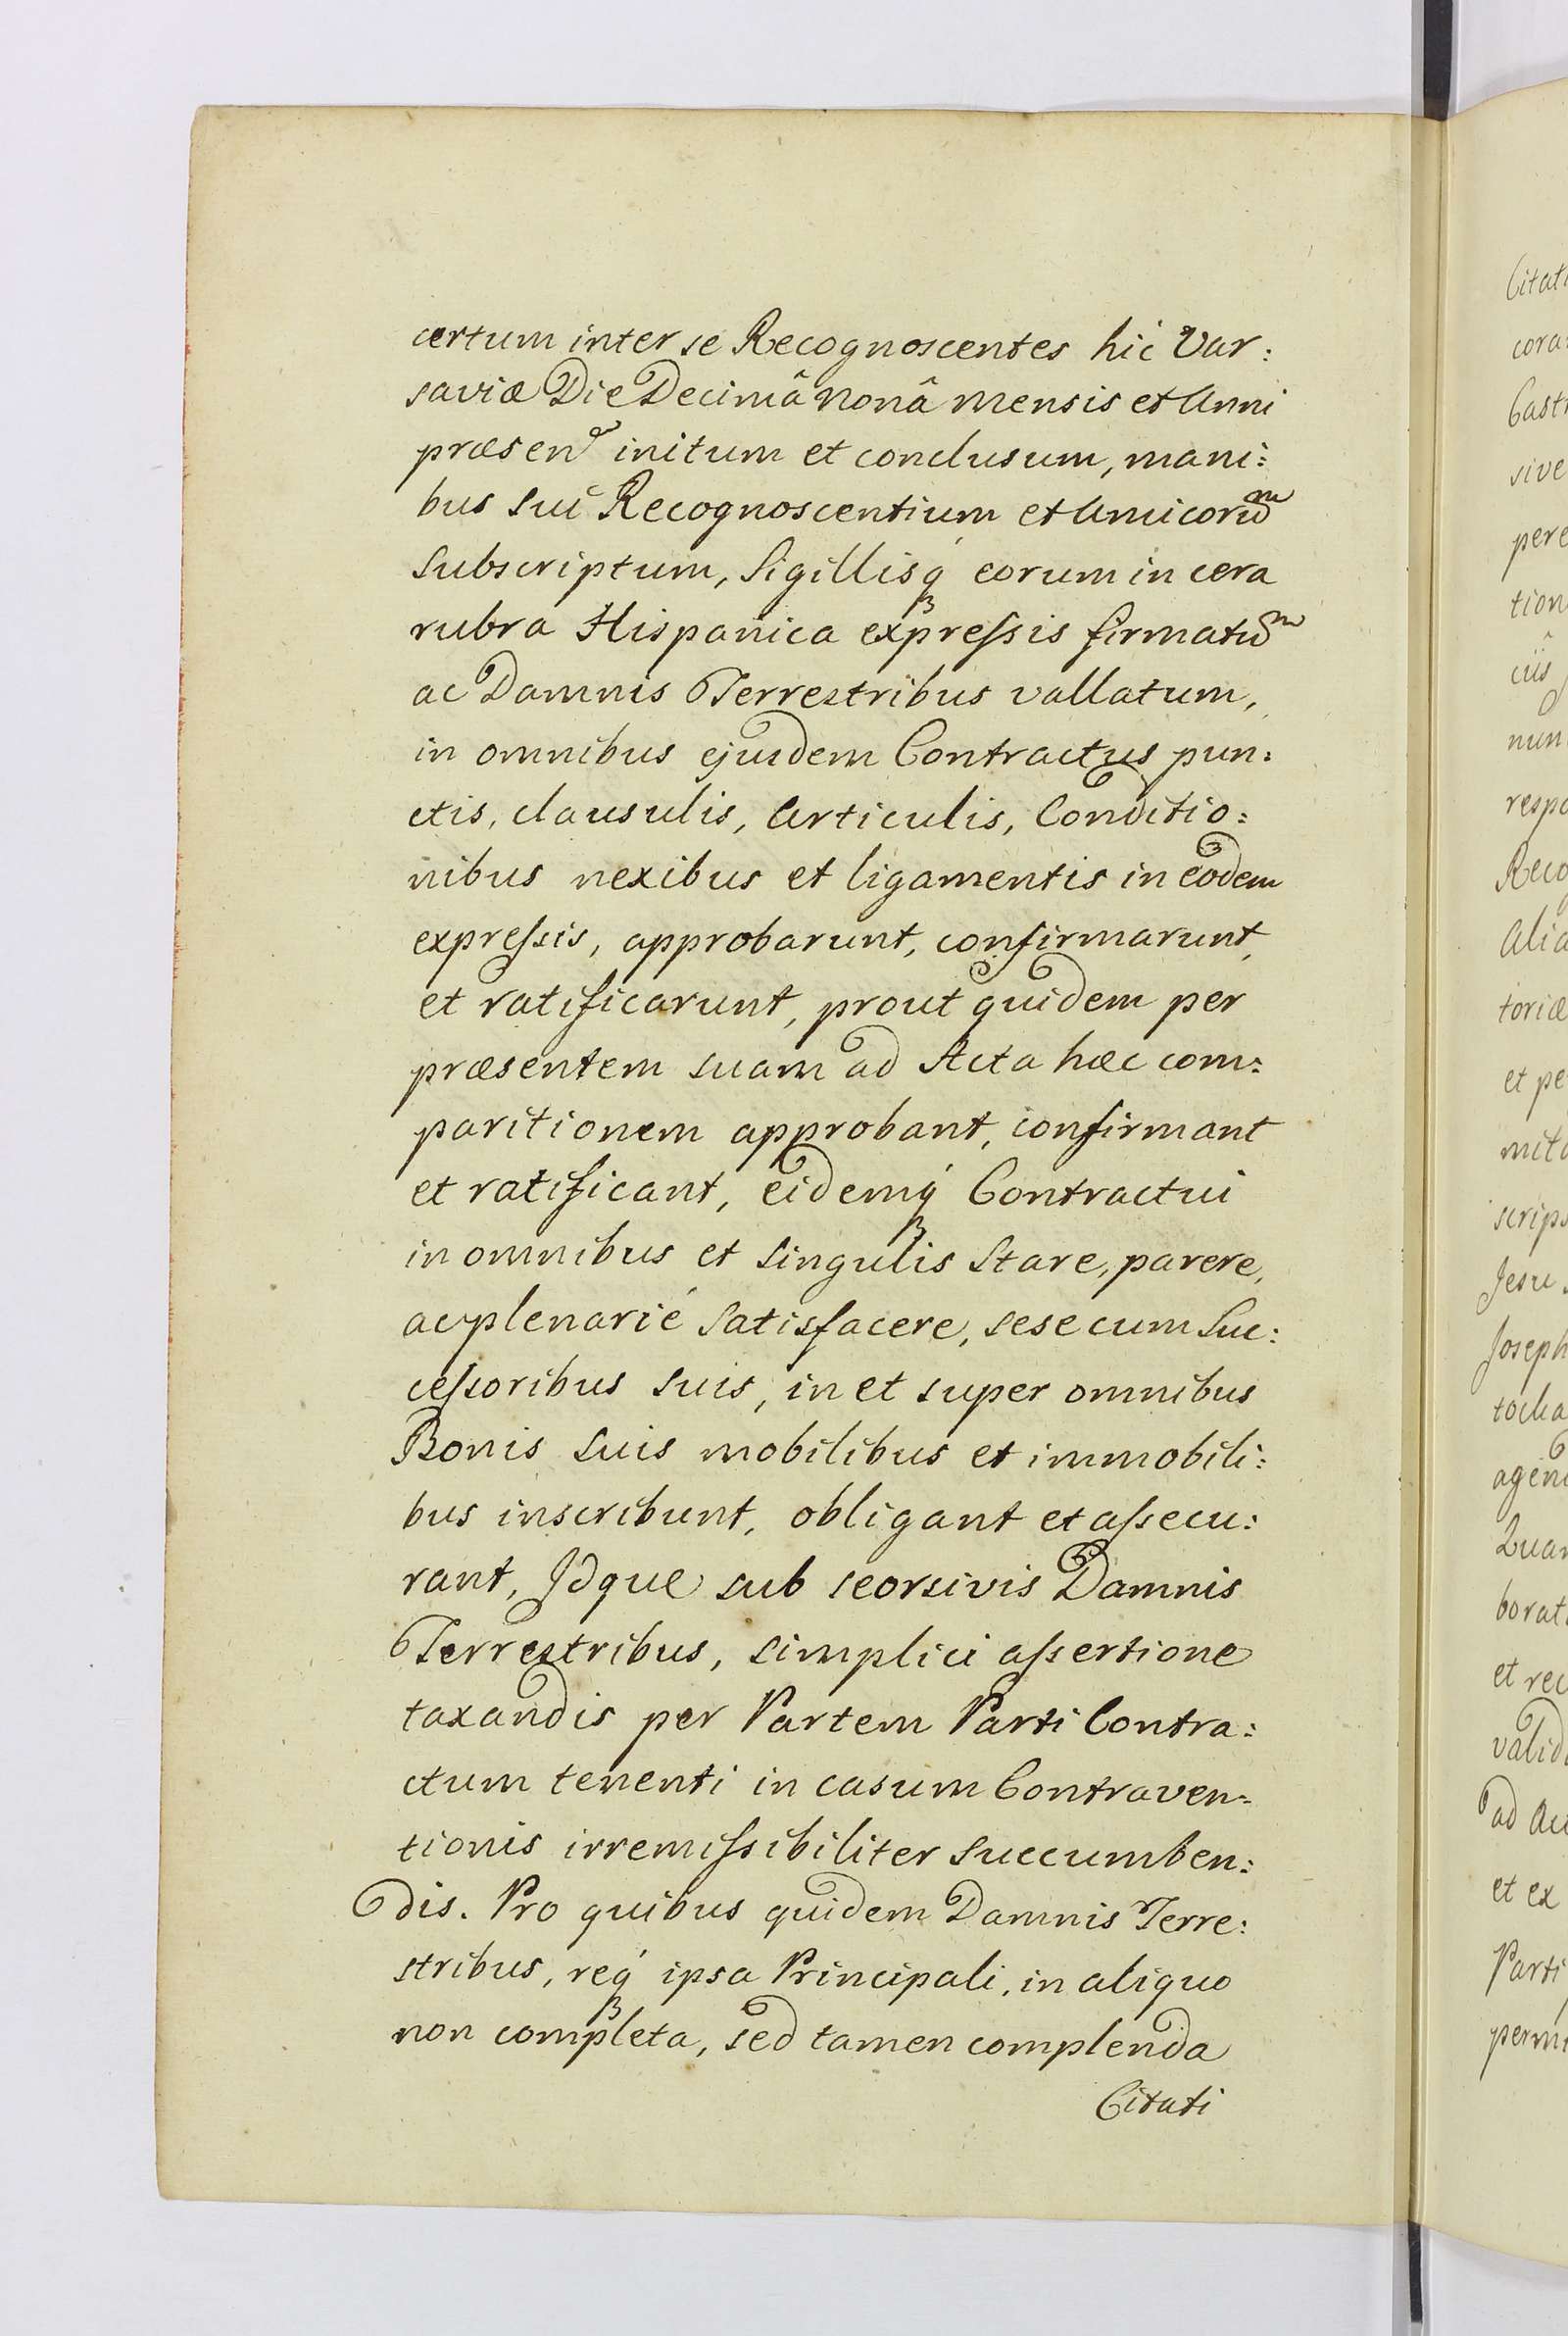 certum inter se Recognoscentes hic Var:
saviæ Die Decimâ Nonâ mensis et Anni
præsen initum et conclusum, mani:
bus sui Recognoscentium et Amicorum
subscriptum, Sigillisq́ eorum in cera
rubra Hispanica expreſsis firmatum
ac Damnis Terrestribus vallatum,
in omnibus ejusdem Contractus pun:
ctis, clausulis, Articulis, Conditio:
nibus nexibus et ligamentis in eodem
expreſsis, approbarunt, confirmarunt,
et ratificarunt, prout quidem per
præsentem suam ad Acta hæc com:
paritionem approbant, confirmant
et ratificant, eidemq́ Contractui
in omnibus et singulis stare, parere,
ac plenarié satisfacere, sese cum Suc:
ceſsoribus suis, in et super omnibus
Bonis suis mobilibus et immobili:
bus inscribunt, obligant et aſsecu:
rant, Idque sub seorsivis Damnis
Terrestribus, simplici aſsertione
taxandis per Partem Parti Contra:
ctum tenenti in casum Contraven:
tionis irremiſsibiliter succumben:
dis. Pro quibus quidem Damnis Terre:
stribus, req́ ipsa Principali, in aliquo
non completa, sed tamen complenda
Citati
Citati
cora
Cast
sive
pere
tion
ciis
nun
respo
Reco
Alia
toriæ
et pe
mita
scrips
Jesu
Joseph
tocka
agen
Quar
borat
et rec
valid
ad Ac
et ex
Parti
permi